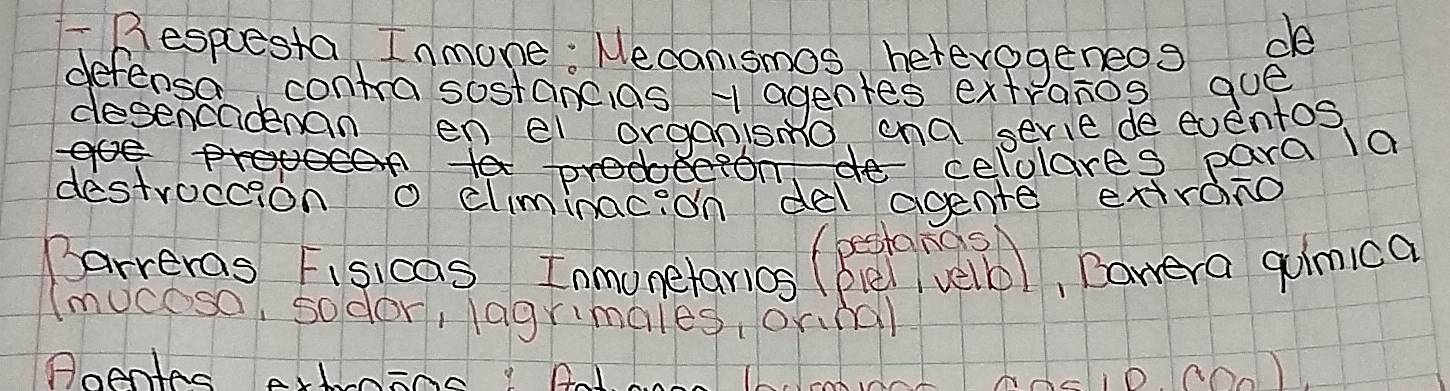 - Respuesta Inmune: Mecanismos heterogeneos de
defensa contra sostancias y agentes extraños que
desencadenan en el organismo una serie de eventos
que provocan la producción de celulares para la
destrucción o eliminación del agente extraño
(pestañas)
Barreras Fisicas Inmunetarios (piel, vello), Barrera química
(mucosa, sodor, lagrimales, orinal
Agentes extraños: